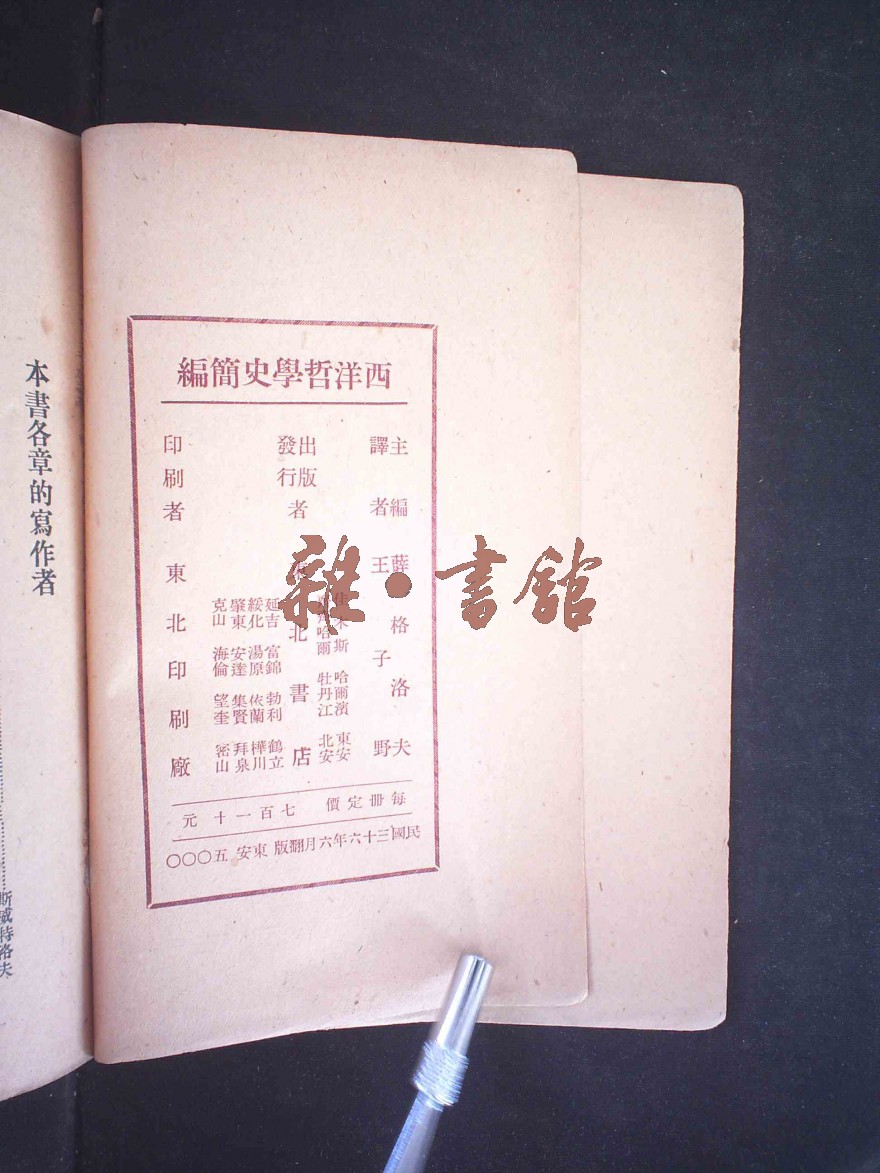 西洋哲學史簡編
主編 薛格洛夫
譯者 王子野
出版
發行
者
北書店
佳木斯 哈爾濱 東安
哈爾 牡丹江 北安
延吉 富錦 勃利 鶴立
綏化 湯原 依蘭 樺川
肇東 安達 集賢 拜泉
克山 海倫 望奎 密山
印刷者 東北印刷廠
每冊定價 七百一十元
民國三十六年六月翻版 東安 五〇〇〇
雜·書館
本書各章的寫作者
斯威特洛夫